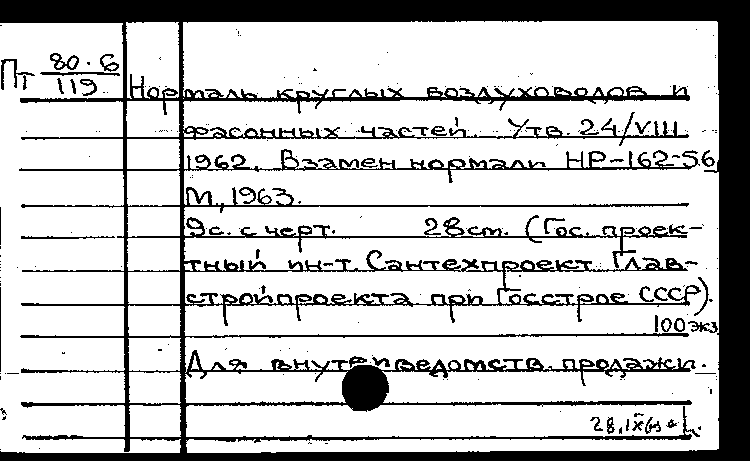 Пт 80-6/119
Нормаль круглых воздуховодов и
фасонных частей. Утв. 24/VIII
1962. Взамен нормали НР-162-56
М., 1963.
9с. с черт. 28см. (Гос. проек-
тный ин-т. Сантехпроект Глав-
стройпроекта при Госстрое СССР).
100 экз
Для внутриведомств. продажи.